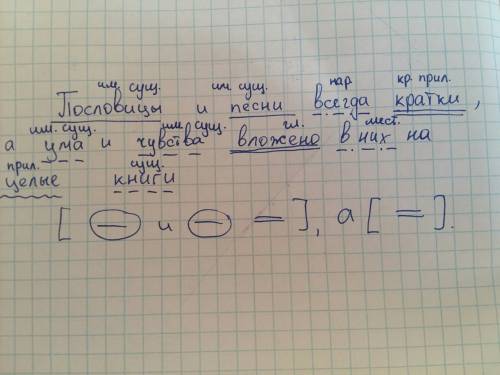 им. сущ. им. сущ. нар. кр. прил.
Пословицы и песни всегда кратки,
им. сущ. им. сущ. гл. мест.
а ума и чувства вложено в них на
прил. сущ.
целые книги
[ и ], а [ ].